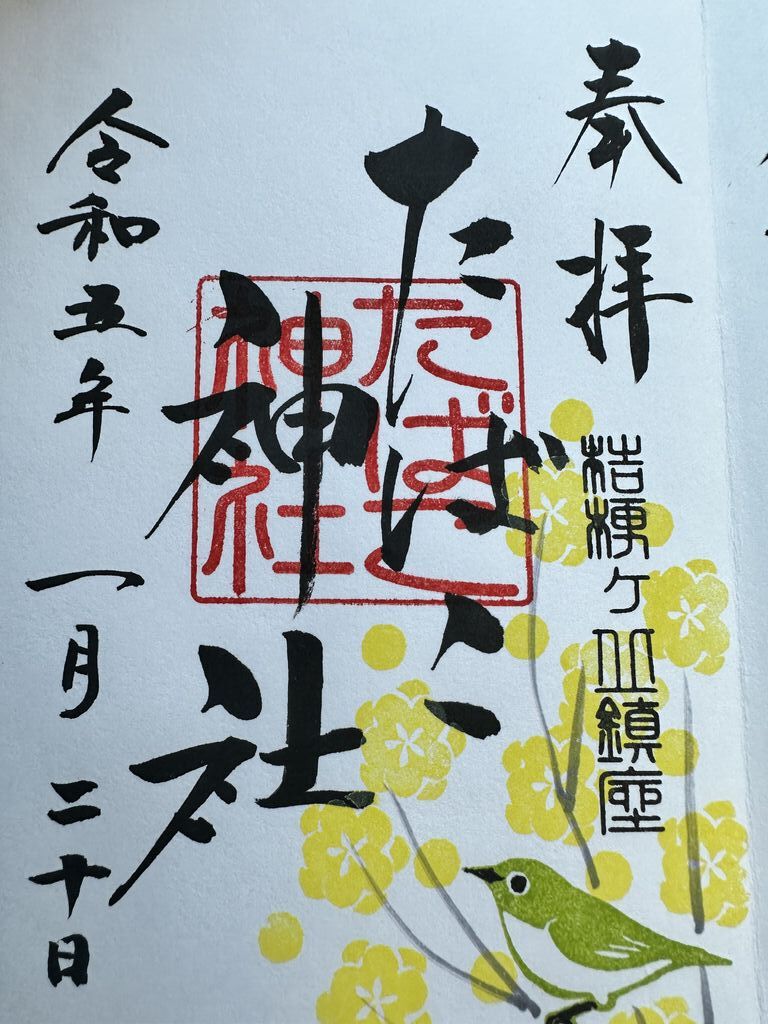 奉拝
桔梗ケ丘鎮座
たばこ神社
たばこ神社
令和五年 一月 二十日